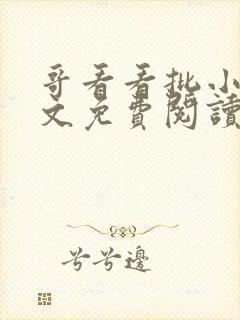 哥看看批小
文免費閱讀
兮兮邊